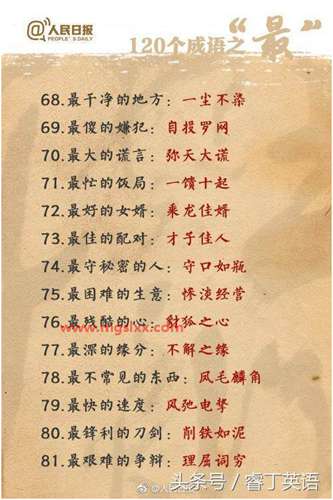 @人民日报
PEOPLE'S DAILY
120个成语之“最”
68.最干净的地方：一尘不染
69.最傻的嫌犯：自投罗网
70.最大的谎言：弥天大谎
71.最忙的饭局：一馈十起
72.最好的女婿：乘龙佳婿
73.最佳的配对：才子佳人
74.最守秘密的人：守口如瓶
75.最困难的生意：惨淡经营
76.最残酷的心：豺狐之心
www.mgslxx.com
77.最深的缘分：不解之缘
78.最不常见的东西：凤毛麟角
79.最快的速度：风驰电掣
80.最锋利的刀剑：削铁如泥
81.最艰难的争辩：理屈词穷
@人民日报
头条号/睿丁英语